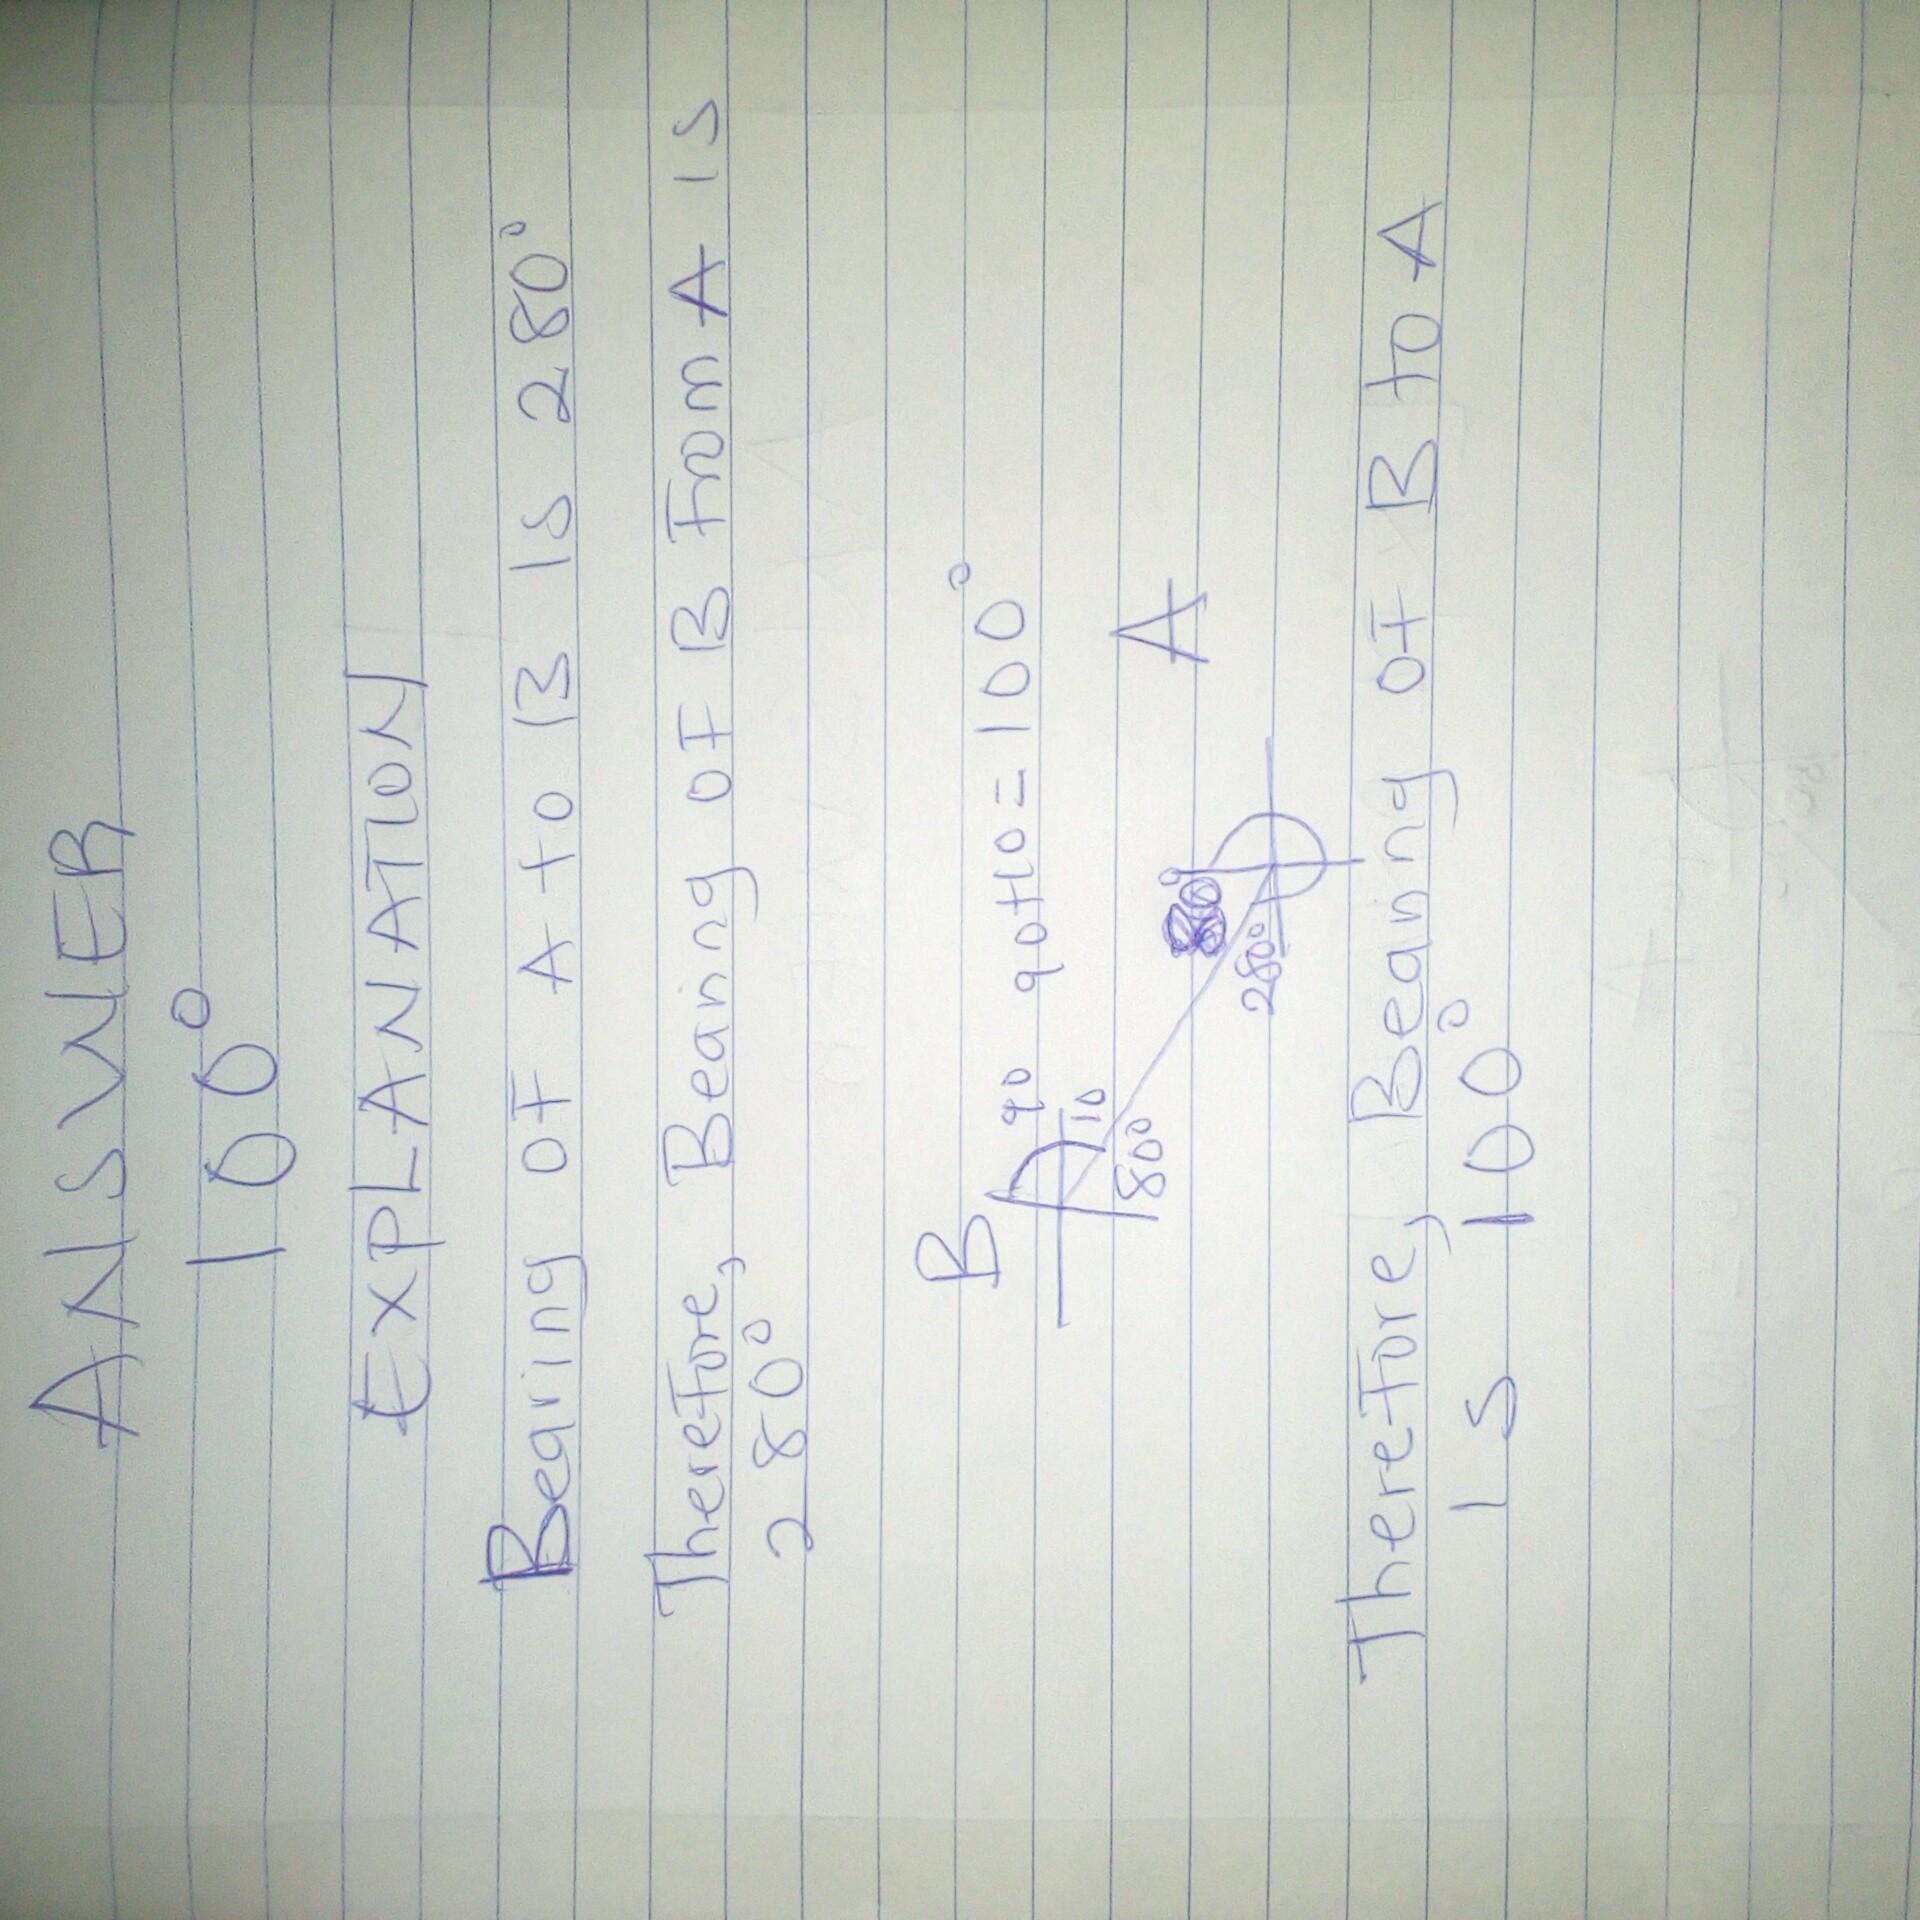 ANSWER
100°
EXPLANATION
Bearing of A to B Is 280°
Therefore, Bearing of B From A is
280°
B 90 90+10=100°
10
80°
A
280°
Therefore, Bearing of B to A
Is 100°